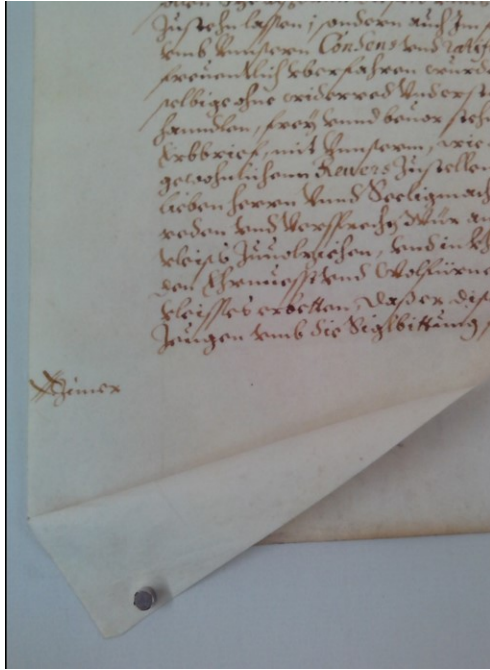 Zustehn lassen, sondern auch Im f
vmb Vnnsern Consens vnd ratif
freuentlich vberfahren wurde
selbige ohne widerred Vnderst
hanndlen, frey vnnd beuor steh
Erbbrief, mit Vnnserm, wie
gewohnlichenn Revers Zustellen
lieben herren Vnnd Seeligmach
reden vnd Versprechen Wür an
vleiss Zuuolziehen, vnd in
den Ehrnuesst vnd Wolfürne
vleisses erbetten, Daß er dis
Zeugen vmb die Siglbittung